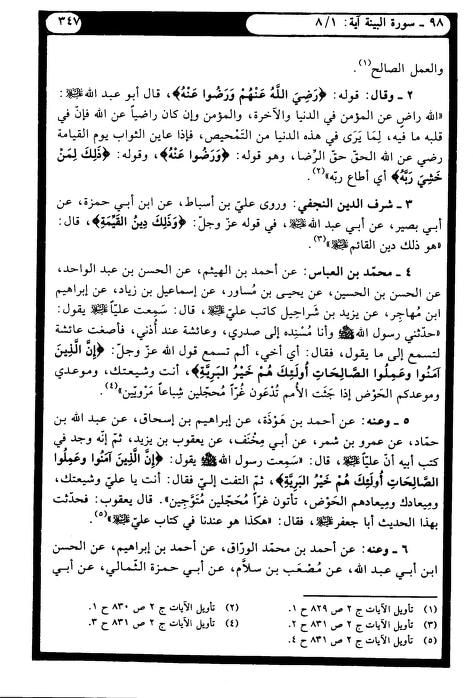 ٩٨ ـ سورة البينة آية: ٨/١
٣٤٧
والعمل الصالح(١).
٢ ـ وقال: قوله: ﴿رَضِيَ اللَّهُ عَنْهُمْ وَرَضُوا عَنْهُ﴾، قال أبو عبد الله ﷺ:
«الله راضٍ عن المؤمن في الدنيا والآخرة، والمؤمن وإن كان راضياً عن الله فإنّ في
قلبه ما فيه، لِمَا يَرَى في هذه الدنيا من التَمْحيص، فإذا عاين الثواب يوم القيامة
رضي عن الله الحقّ حقّ الرِّضا، وهو قوله: ﴿وَرَضُوا عَنْهُ﴾، وقوله: ﴿ذَلِكَ لِمَنْ
خَشِيَ رَبَّهُ﴾ أي أطاع ربّه»(٢).
٣ ـ شرف الدين النجفي: وروى عليّ بن أسباط، عن ابن أبي حمزة، عن
أبي بصير، عن أبي عبد الله ﷺ، في قوله عزّ وجلّ: ﴿وَذَلِكَ دِينُ القَيِّمَةِ﴾، قال:
«هو ذلك دين القائم ﷺ»(٣).
٤ ـ محمّد بن العباس: عن أحمد بن الهيثم، عن الحسن بن عبد الواحد،
عن الحسن بن الحسين، عن يحيى بن مُساور، عن إسماعيل بن زياد، عن إبراهيم
ابن مُهاجِر، عن يزيد بن شَراحيل كاتب عليّ ﷺ، قال: سَمِعت عليّاً ﷺ يقول:
«حدّثني رسول الله ﷺ وأنا مُسْنِده إلى صدري، وعائشة عند أُذني، فأصغت عائشة
لتسمع إلى ما يقول، فقال: أي أخي، ألم تسمع قول الله عزّ وجلّ: ﴿إِنَّ الَّذِينَ
آمَنُوا وعَمِلُوا الصَّالِحَاتِ أُولَئِكَ هُمْ خَيْرُ البَرِيَّةِ﴾، أنت وشيعتك، وموعدي
وموعدكم الحَوْض إذا جَثَت الأُمم تُدْعَون غُرّاً مُحجّلين شِباعاً مَرْوِيّين»(٤).
٥ ـ وعنه: عن أحمد بن هَوْذَة، عن إبراهيم بن إسحاق، عن عبد الله بن
حمّاد، عن عمرو بن شمر، عن أبي مِخْنَف، عن يعقوب بن يزيد، ثمّ إنّه وجد في
كتب أبيه أنّ عليّاً ﷺ، قال: «سَمِعت رسول الله ﷺ يقول: ﴿إِنَّ الَّذِينَ آمَنُوا وعَمِلُوا
الصَّالِحَاتِ أُولَئِكَ هُمْ خَيْرُ البَرِيَّةِ﴾، ثُمّ التفت إليّ، فقال: أنت يا عليّ وشيعتك،
وميعادك وميعادهم الحَوْض، تأتون غرّاً مُحَجّلين مُتَوَّجين». قال يعقوب: فحدّثت
بهذا الحديث أبا جعفر ﷺ، فقال: «هكذا هو عندنا في كتاب عليّ ﷺ»(٥).
٦ ـ وعنه: عن أحمد بن محمّد الورّاق، عن أحمد بن إبراهيم، عن الحسن
ابن أبي عبد الله، عن مُصْعَب بن سلاّم، عن أبي حمزة الثُمالي، عن أبي
(١) تأويل الآيات ج ٢ ص ٨٢٩ ح ١. (٢) تأويل الآيات ج ٢ ص ٨٣٠ ح ١.
(٣) تأويل الآيات ج ٢ ص ٨٣١ ح ٢. (٤) تأويل الآيات ج ٢ ص ٨٣١ ح ٣.
(٥) تأويل الآيات ج ٢ ص ٨٣١ ح ٤.